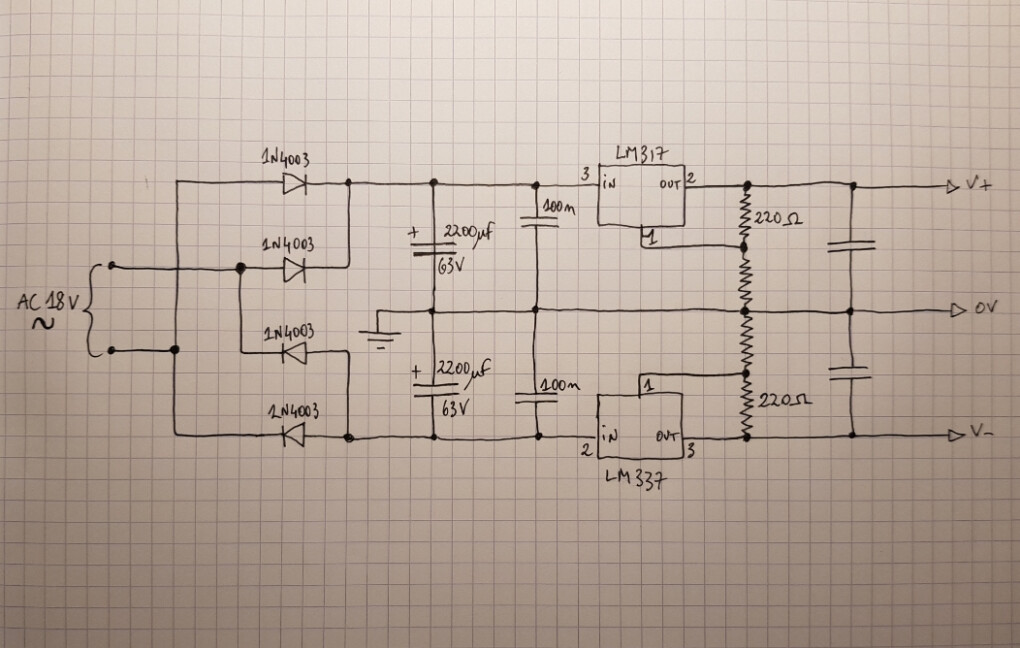 1N4003
1N4003
AC 18V
~
1N4003
1N4003
+
2200µf
63V
+
2200µf
63V
100n
100n
LM317
3
iN
OUT
2
1
220Ω
V+
0V
1
220Ω
iN
OUT
2
3
LM337
V-